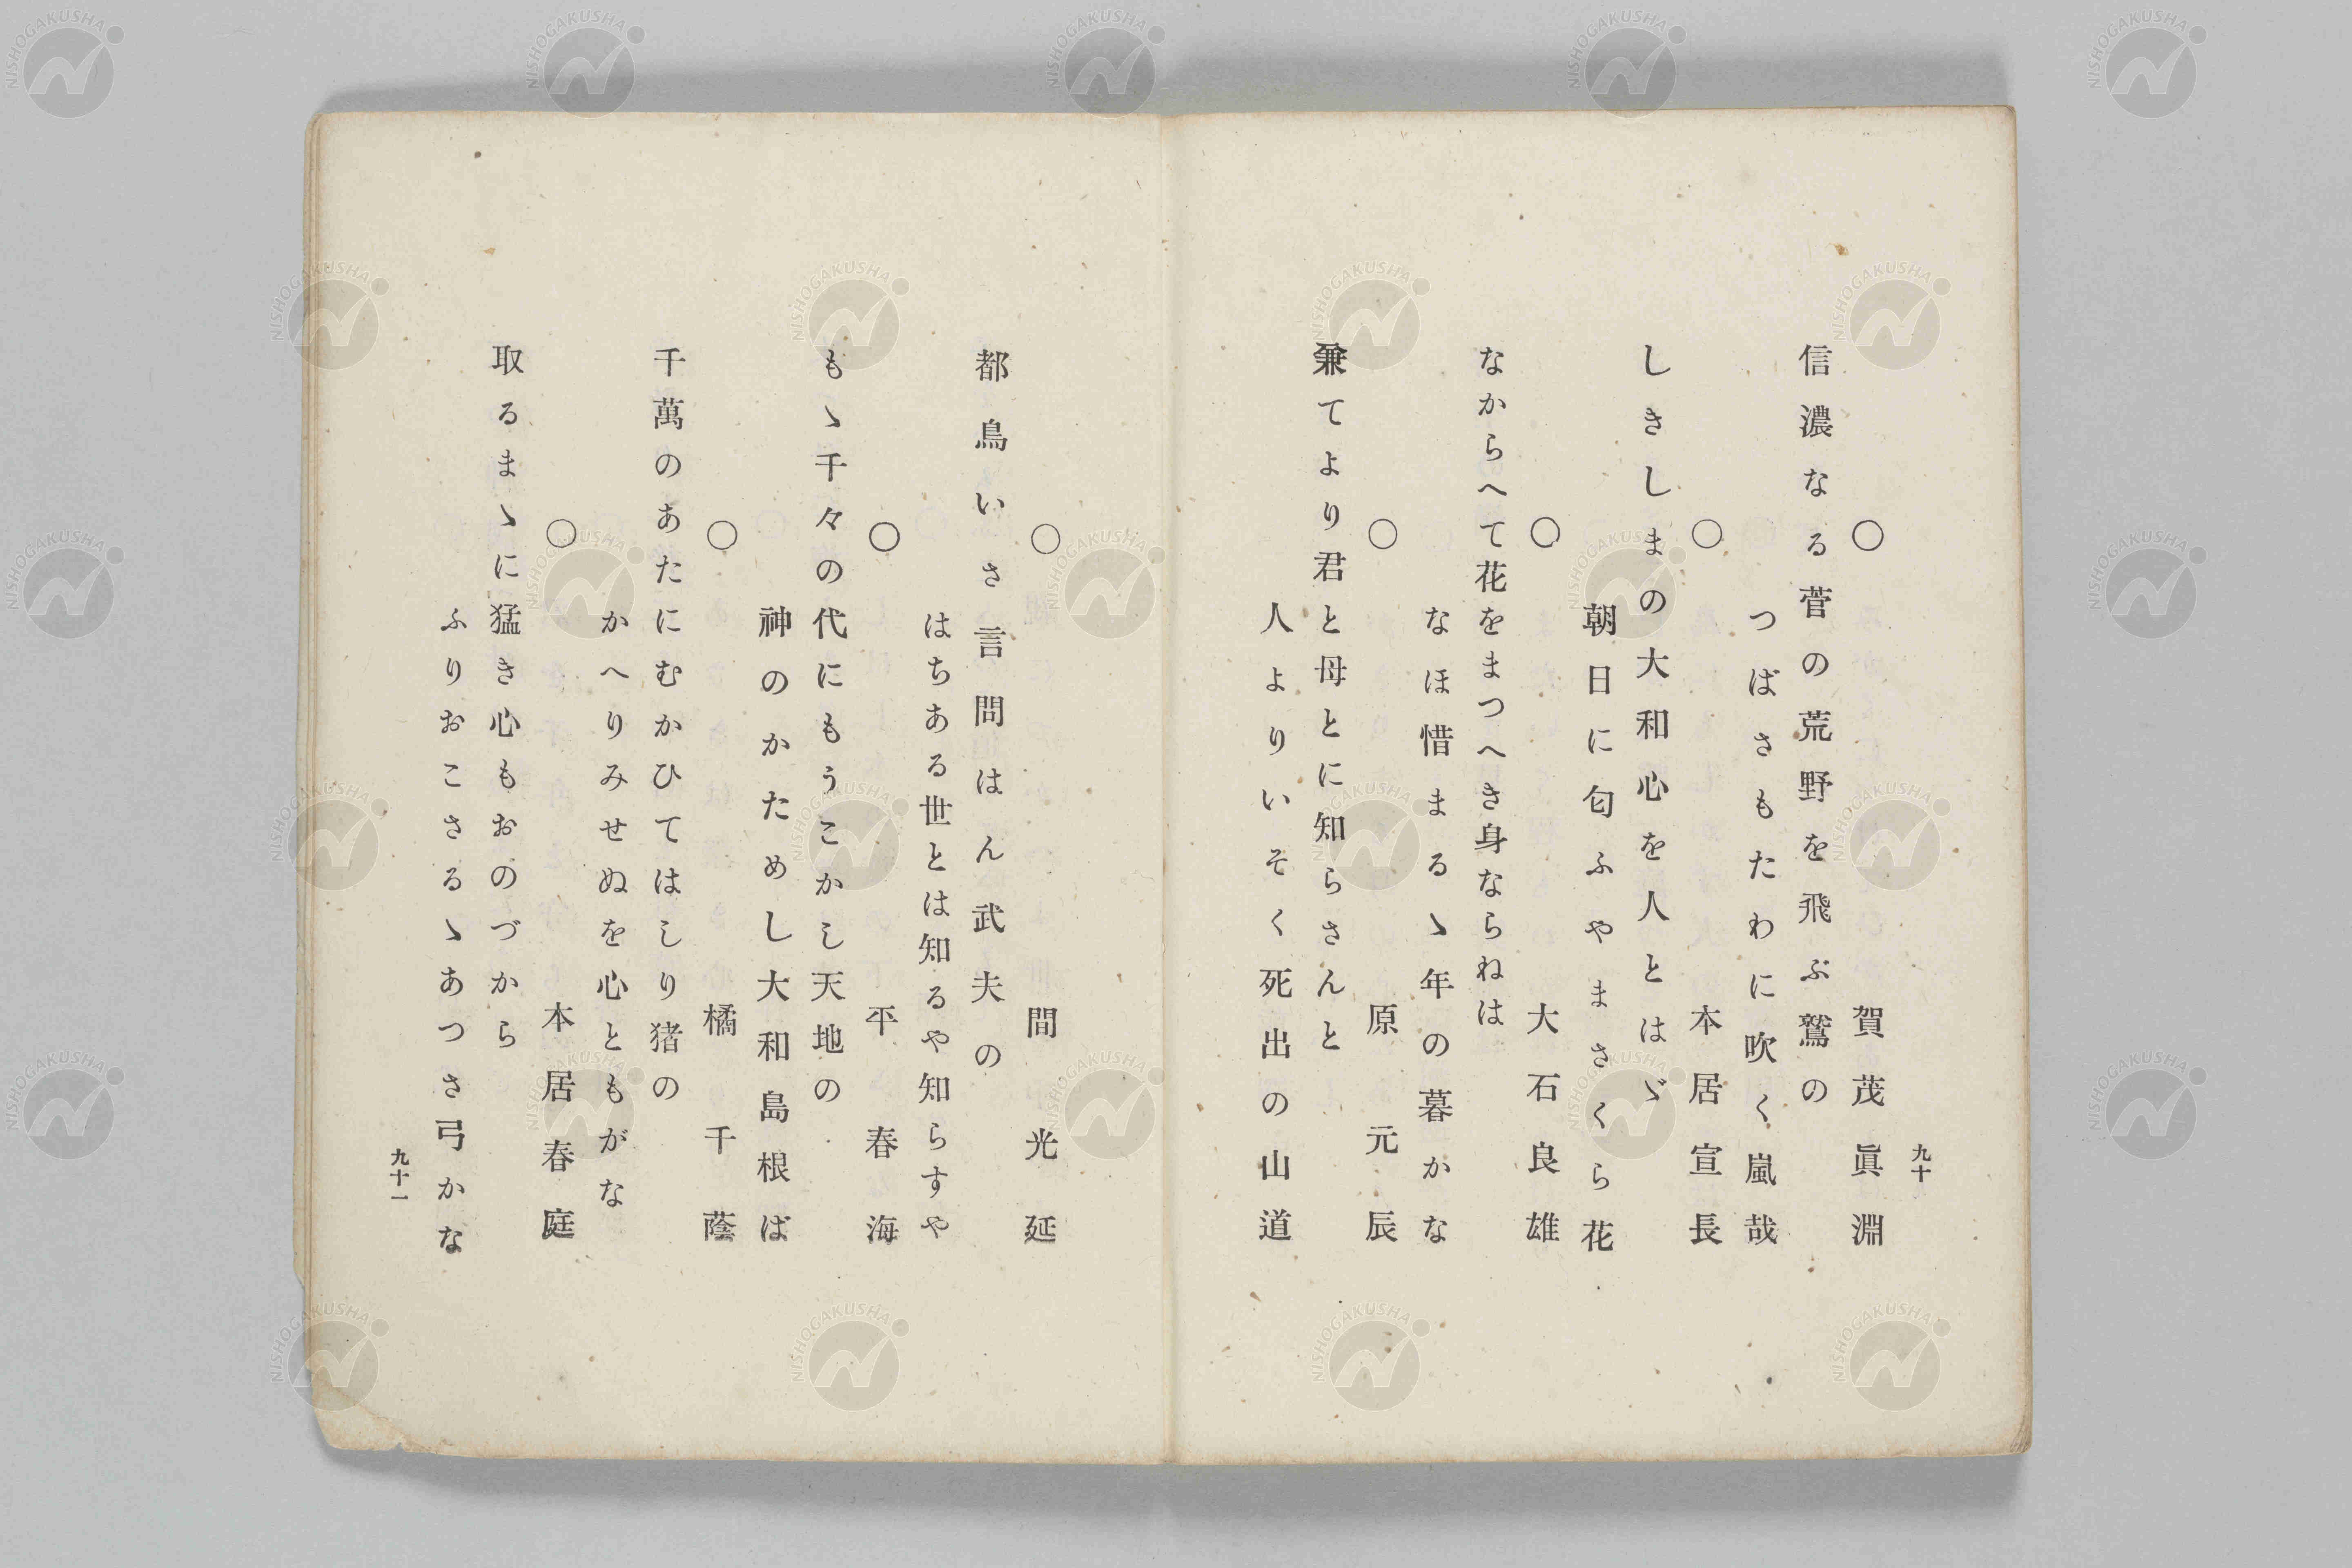 九十
○　賀茂眞淵
信濃なる菅の荒野を飛ぶ鷲の
つばさもたわに吹く嵐哉
○　本居宣長
しきしまの大和心を人とはゞ
朝日に匂ふやまさくら花
○　大石良雄
なからへて花をまつへき身ならねは
なほ惜まるゝ年の暮かな
○　原元辰
兼てより君と母とに知らさんと
人よりいそく死出の山道
○　間光延
都鳥いさ言問はん武夫の
はちある世とは知るや知らすや
○　平春海
もゝ千々の代にもうこかし天地の
神のかためし大和島根ば
○　橘千蔭
千萬のあたにむかひてはしり猪の
かへりみせぬを心ともがな
○　本居春庭
取るまゝに猛き心もおのづから
ふりおこさるゝあつさ弓かな
九十一
NISHOGAKUSHA